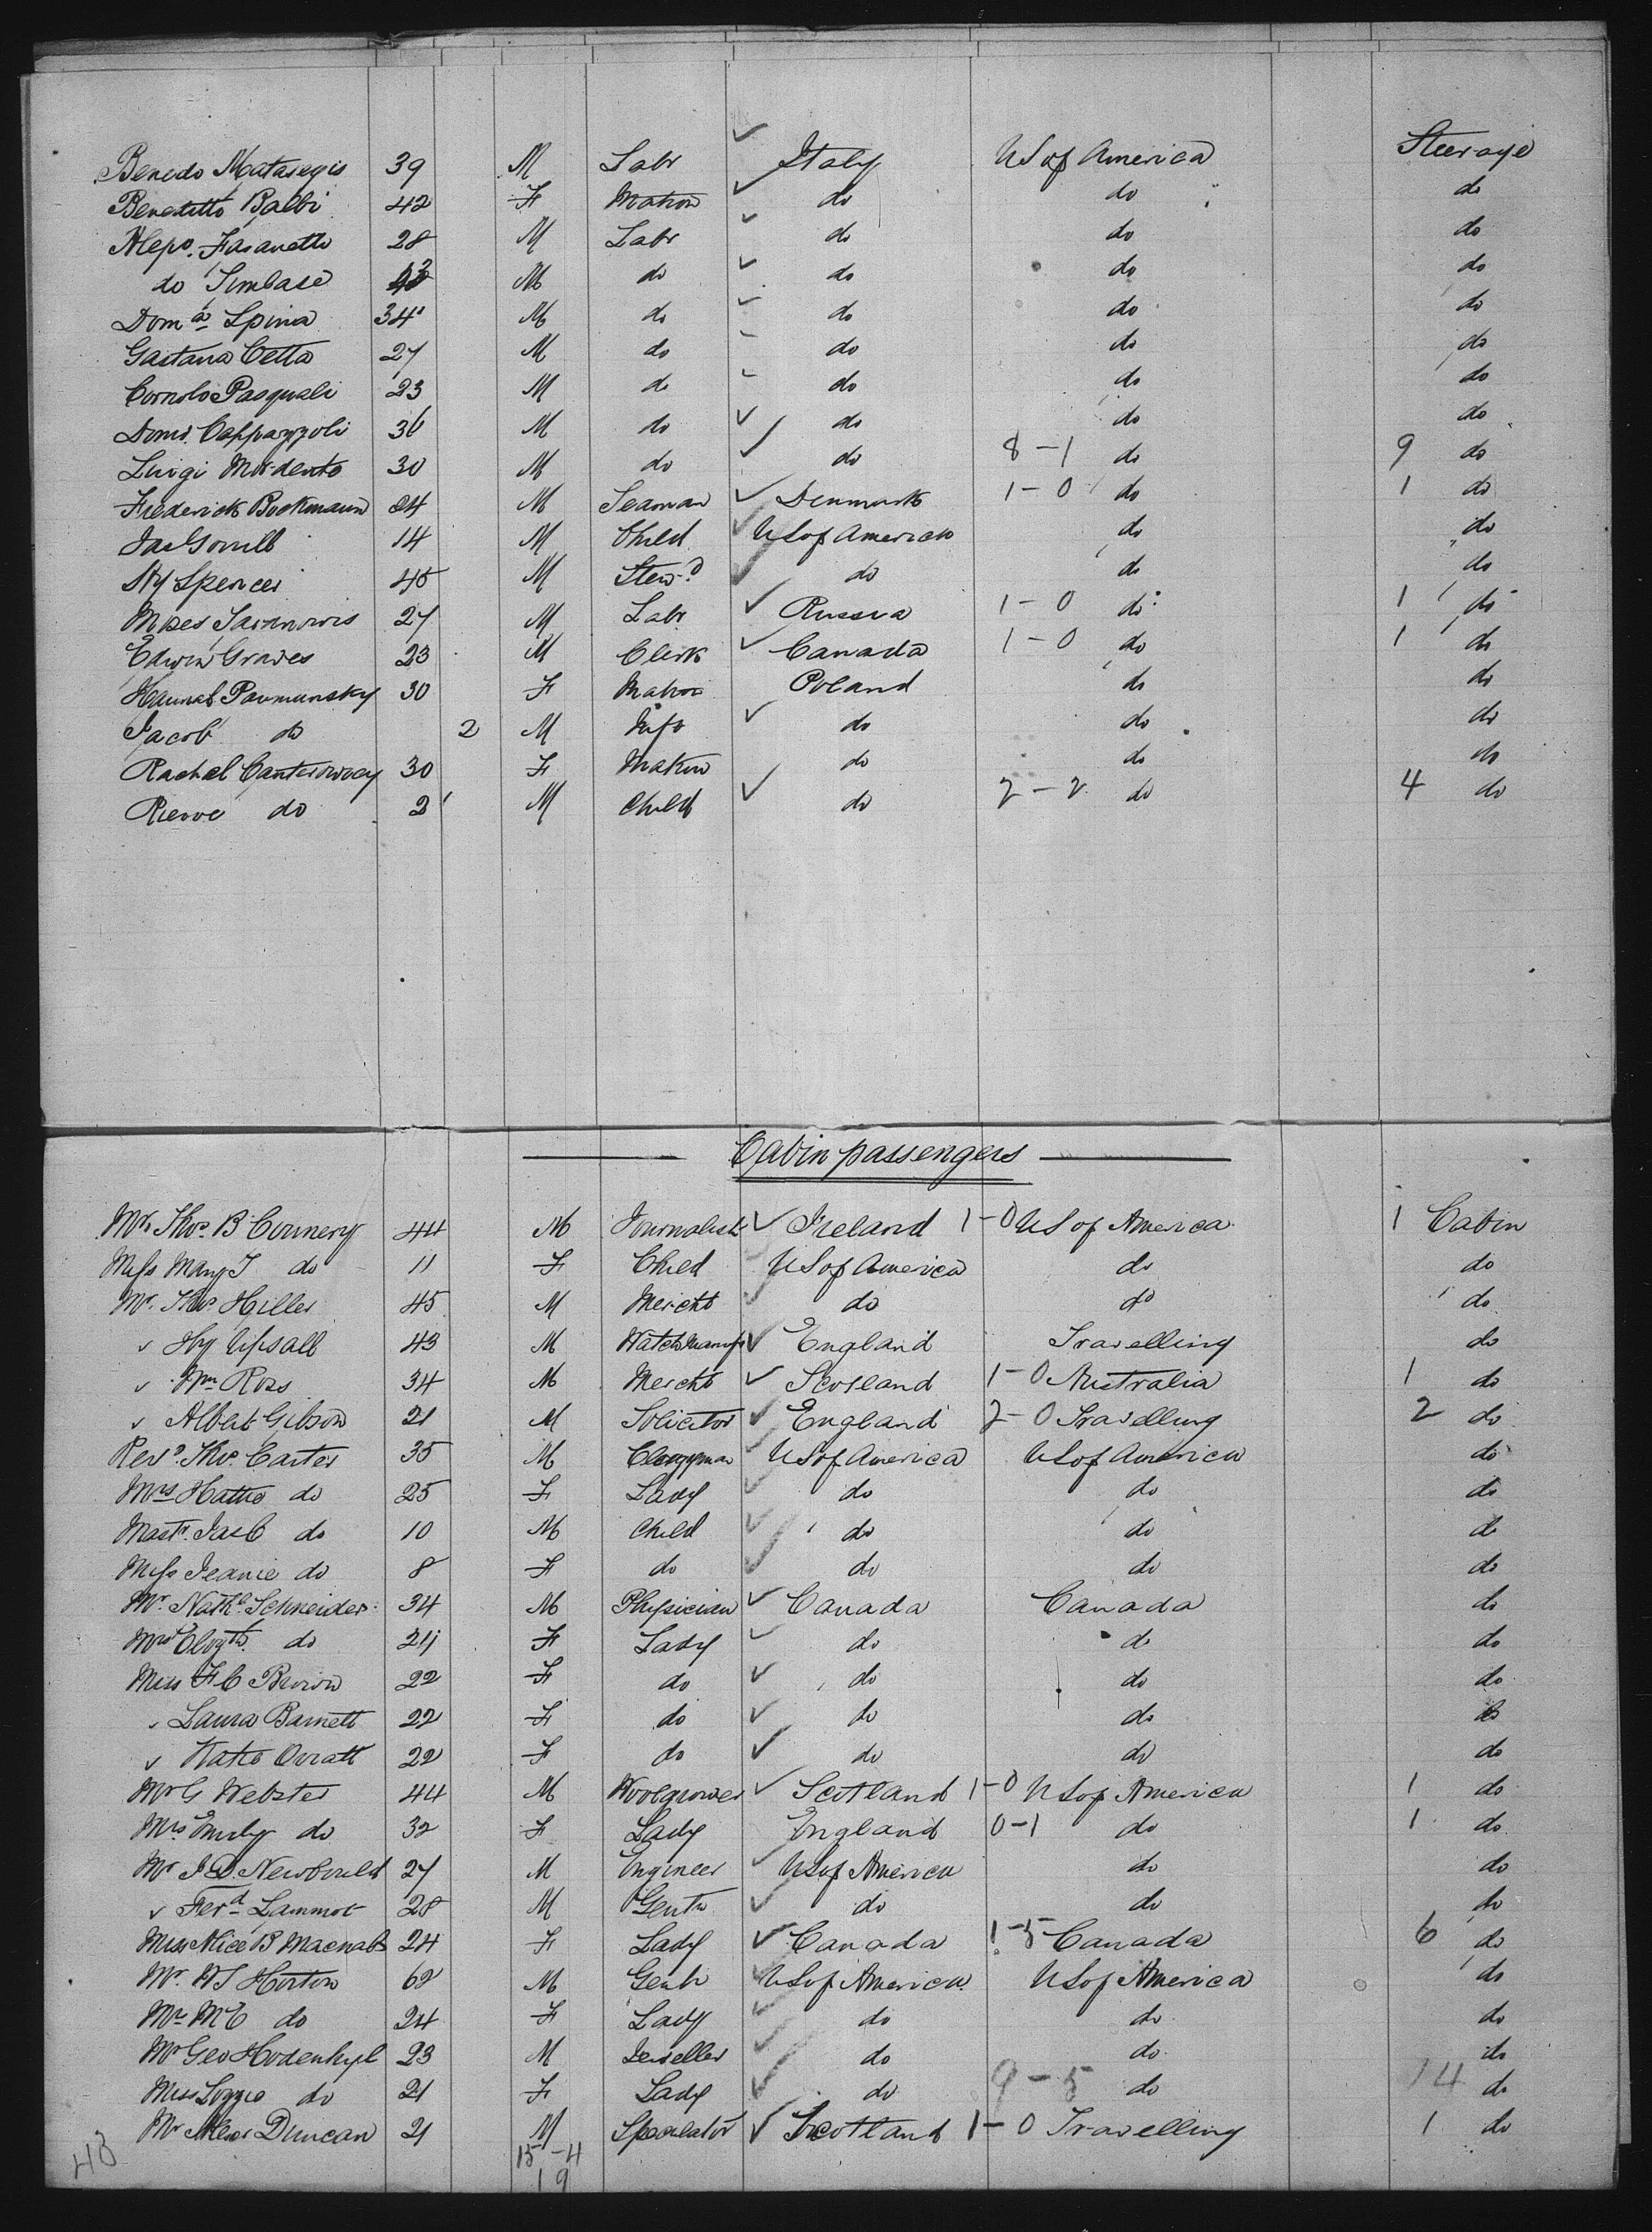 Benedo Matasegis 39 M Labr ✓ Italy US of America Steerage
Benedetto Balbi 42 F Matron ✓ do do do
Alepo. Fasanetto 28 M Labr ✓ do do do
do Simbase M do ✓ do do do
Dom a Spina 34 M do ✓ do do do
Gaetana Cetta 27 M do do do do
Cornolo Pasquali 23 M do do do do
Domo. Cappazzoli 36 M do ✓ do do do
Luigi Mordento 30 M do ✓ do 8-1 do 9 do
Frederick Bockmann 24 M Seaman ✓ Denmark 1-0 do 1 do
Jas Gorrell 14 M Child ✓ US of America do do
Hy Spencer 45 M Stewd ✓ do do do
Moses Saranowis 27 M Labr ✓ Russia 1-0 do 1 do
Edwin Graves 23 M Clerk ✓ Canada 1-0 do 1 do
Hannah Paumunsky 30 F Matron Poland do do
Jacob do 2 M Inft ✓ do do do
Rachel Canterowocy 30 F Matron do do do
Pierre do 2 M Child ✓ do 2-2 do 4 do
Cabin passengers
Mr. Thos. B Connery 44 M Journalist ✓ Ireland 1-0 US of America 1 Cabin
Miss Mary J do 11 F Child US of America do do
Mr. Thos Hiller 45 M Mercht ✓ do do do
" Hy Upsall 43 M Watch Manufr ✓ England Travelling do
" Wm Ross 34 M Mercht ✓ Scotland 1-0 Australia 1 do
" Albert Gibson 21 M Solicitor ✓ England 2-0 Travelling 2 do
Revd. Thos Carter 35 M Clergyman ✓ US of America US of America do
Mrs Hattie do 25 F Lady ✓ do do do
Mastr. Jas C do 10 M Child ✓ do do do
Miss Jeanie do 8 F do ✓ do do do
Mr. Nathl. Schneider 34 M Physician ✓ Canada Canada do
Mrs Elizth. do 24 F Lady ✓ do do do
Miss F C Brown 22 F do ✓ do do do
" Laura Barnett 22 F do ✓ do do do
" Katie Orratt 22 F do ✓ do do do
Mr G Webster 44 M Woolgrower ✓ Scotland 1-0 US of America 1 do
Mrs Emily do 32 F Lady England 0-1 do 1 do
Mr J D. Newbould 27 M Engineer ✓ US of America do do
" Ferd Lammot 28 M Gentn ✓ do do do
Miss Alice B Macnab 24 F Lady ✓ Canada 1-5 Canada 6 do
Mr. W J Horton 62 M Gentn ✓ US of America US of America do
Mrs M E do 24 F Lady ✓ do do do
Mr Geo Hodenhyl 23 M Jeweller ✓ do do do
Miss Lizzie do 21 F Lady ✓ do 9-5 do 14 do
Mr Alexr Duncan 21 M Speculator ✓ Scotland 1-0 Travelling 1 do
15-4
19